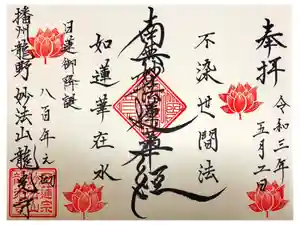 奉拝
令和三年
五月二日
不染世間法
南無妙法蓮華経
如蓮華在水
日蓮御降誕
八百年
播州龍野 妙法山